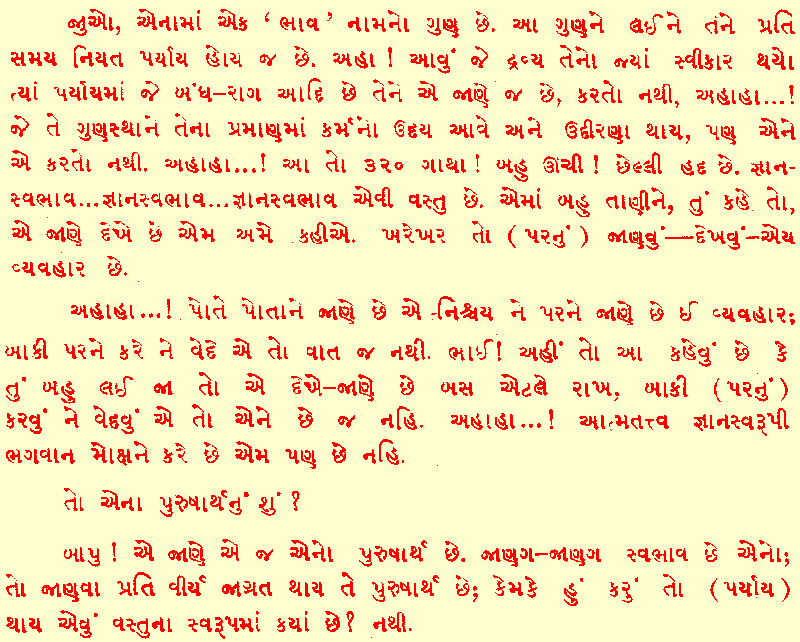 જુઓ, એનામાં એક ‘ભાવ’ નામનો ગુણ છે. આ ગુણને લઈને તેને પ્રતિ
સમય નિયત પર્યાય હોય જ છે. અહા! આવું જે દ્રવ્ય તેનો જ્યાં સ્વીકાર થયો
ત્યાં પર્યાયમાં જે બંધ–રાગ આદિ છે તેને એ જાણે જ છે, કરતો નથી, અહાહા...!
જે તે ગુણસ્થાને તેના પ્રમાણમાં કર્મનો ઉદય આવે અને ઉદીરણા થાય, પણ એને
એ કરતો નથી. અહાહા...! આ તો ૩૨૦ ગાથા! બહુ ઊંચી! છેલ્લી હદ છે. જ્ઞાન-
સ્વભાવ...જ્ઞાનસ્વભાવ...જ્ઞાનસ્વભાવ એવી વસ્તુ છે. એમાં બહુ તાણીને, તું કહે તો,
એ જાણે દેખે છે એમ અમે કહીએ. ખરેખર તો (પરનું) જાણવું—દેખવું–એય
વ્યવહાર છે.
અહાહા...! પોતે પોતાને જાણે છે એ નિશ્ચય ને પરને જાણે છે ઈ વ્યવહાર;
બાકી પરને કરે ને વેદે એ તો વાત જ નથી. ભાઈ! અહીં તો આ કહેવું છે કે
તું બહુ લઈ જા તો એ દેખે–જાણે છે બસ એટલે રાખ, બાકી (પરનું)
કરવું ને વેદવું એ તો એને છે જ નહિ. અહાહા...! આત્મતત્ત્વ જ્ઞાનસ્વરૂપી
ભગવાન મોક્ષને કરે છે એમ પણ છે નહિ.
તો એના પુરુષાર્થનું શું?
બાપુ! એ જાણે એ જ એનો પુરુષાર્થ છે. જાણગ–જાણગ સ્વભાવ છે એનો;
તો જાણવા પ્રતિ વીર્ય જાગ્રત થાય તે પુરુષાર્થ છે; કેમકે હું કરું તો (પર્યાય)
થાય એવું વસ્તુના સ્વરૂપમાં કયાં છે? નથી.